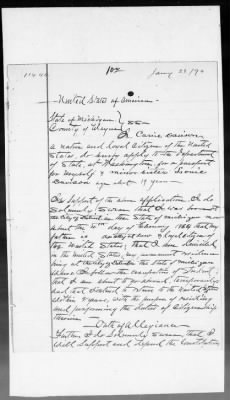 11446
102
Jany 23/90
United States of America
State of Michigan } ss
County of Wayne
I Carrie Davison
a native and loyal Citizen of the United
States, do hereby apply to the Department
of State, at Washington for a passport
for myself & minor sister
Davison age abt 19 year
In support of the above application, I do
Solemnly Swear that I was born
in the State of Michigan
the day of February that my
father is a loyal Citizen of
the United States, that I am domiciled
in the United States, my permanent residence
being at the City of in the State of Michigan
where I follow the occupation of Student;
that I am about to go abroad, temporarily
and that I intend to return to the United States
with the purpose of residing
and performing the duties of Citizenship
therein
Oath of Allegiance
Further I do Solemnly Swear, that I
will Support and defend the Constitution